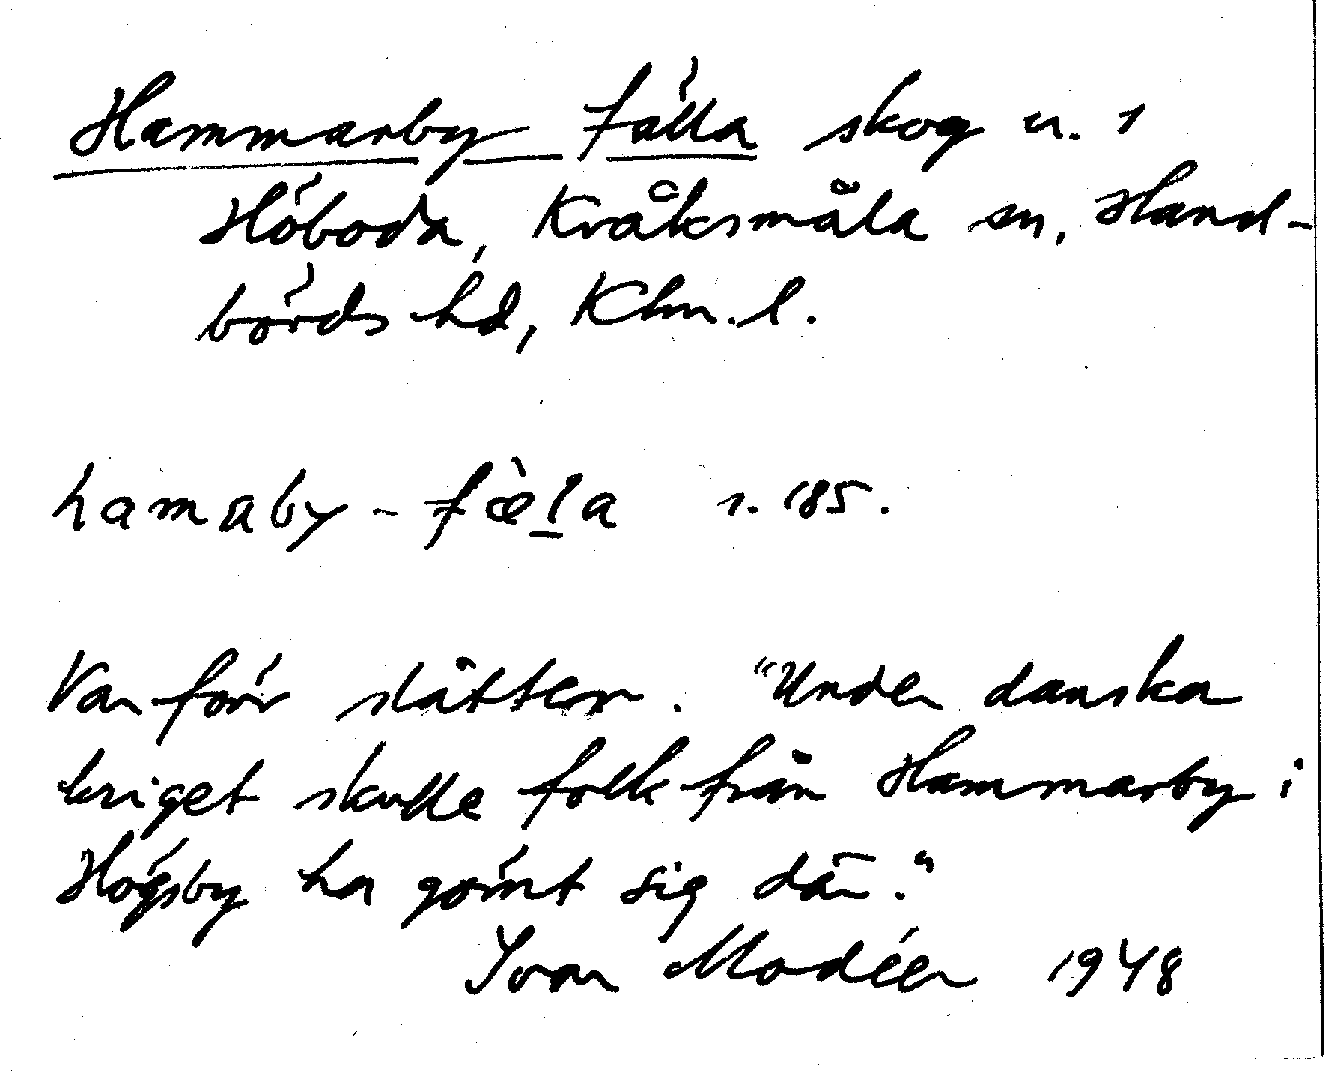 Hammarby fälla skog u. 1
Höboda, Kråksmåla sn, Hand-
börds hd, Klm. l.
hamaby - fæ̀l̲a s. 185.
Var förr slåtter. "Under danska
kriget skulle folk från Hammarby i
Högsby ha gömt sig där."
Ivar Modéer 1948